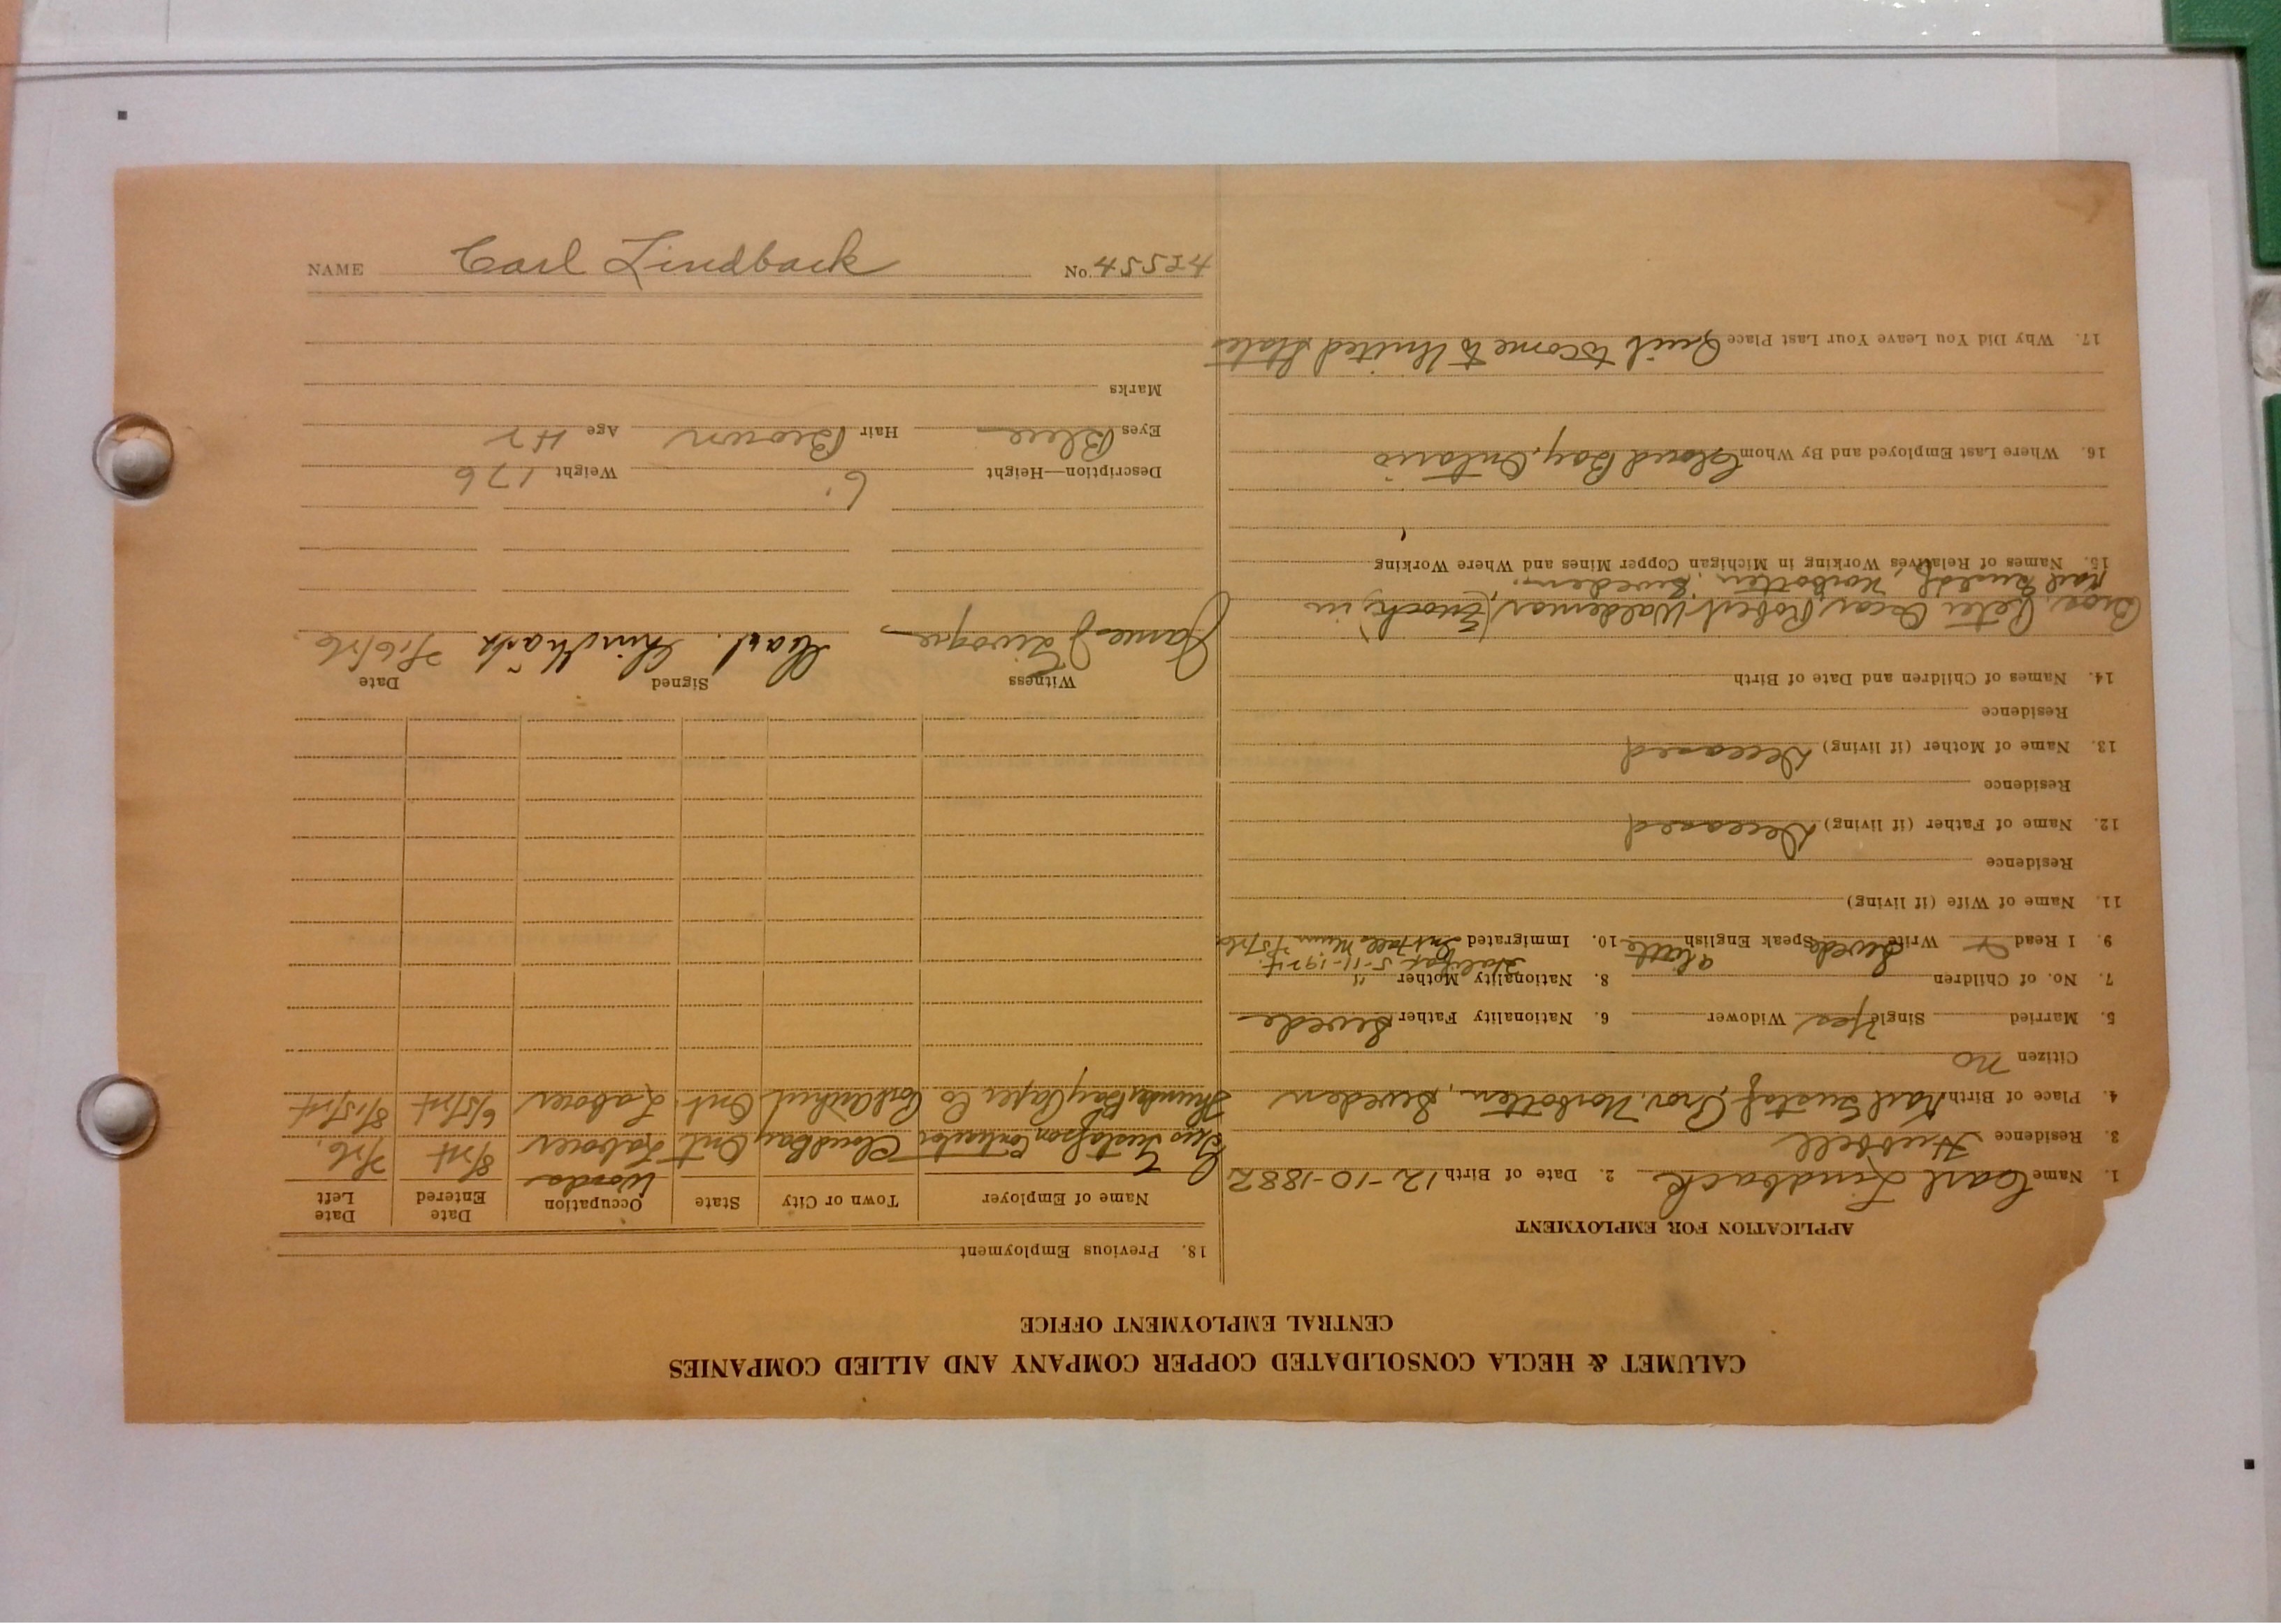 CALUMET & HECLA CONSOLIDATED COPPER COMPANY AND ALLIED COMPANIES
CENTRAL EMPLOYMENT OFFICE
APPLICATION FOR EMPLOYMENT
1. Name Carl Lindback 2. Date of Birth 12-10-1882
3. Residence Hubbell
4. Place of Birth Karl Gustaf, Prov. Norbotten, Sweden
Citizen no
5. Married Single Yes Widower 6. Nationality Father Swede
7. No. of Children 8. Nationality Mother "
Halifax 5-11-1924
9. I Read Write Swede Speak English a little 10. Immigrated Int Falls Minn
11. Name of Wife (if living)
Residence
12. Name of Father (if living) Deceased
Residence
13. Name of Mother (if living) Deceased
Residence
14. Names of Children and Date of Birth
Bros. Peter Oscar, Robert Waldemar, (Enoch) in
Karl Gustaf, Norbotten, Sweden.
15. Names of Relatives Working in Michigan Copper Mines and Where Working
16. Where Last Employed and By Whom Cloud Bay, Ontario
17. Why Did You Leave Your Last Place Quit to come to United States
18. Previous Employment
Name of Employer Town or City State Occupation Date Entered Date Left
Gustafson Contractor Cloud Bay Ont Woods Laborer 8/24 7/26.
Thunder Bay Paper Co Port Arthur Ont. Laborer 6/5/24 8/15/24
Witness Signed Date
James J Carl. 7/16/26.
Description—Height 6' Weight 176
Eyes Blue Hair Brown Age 42
Marks
NAME Carl Lindback No. 45524